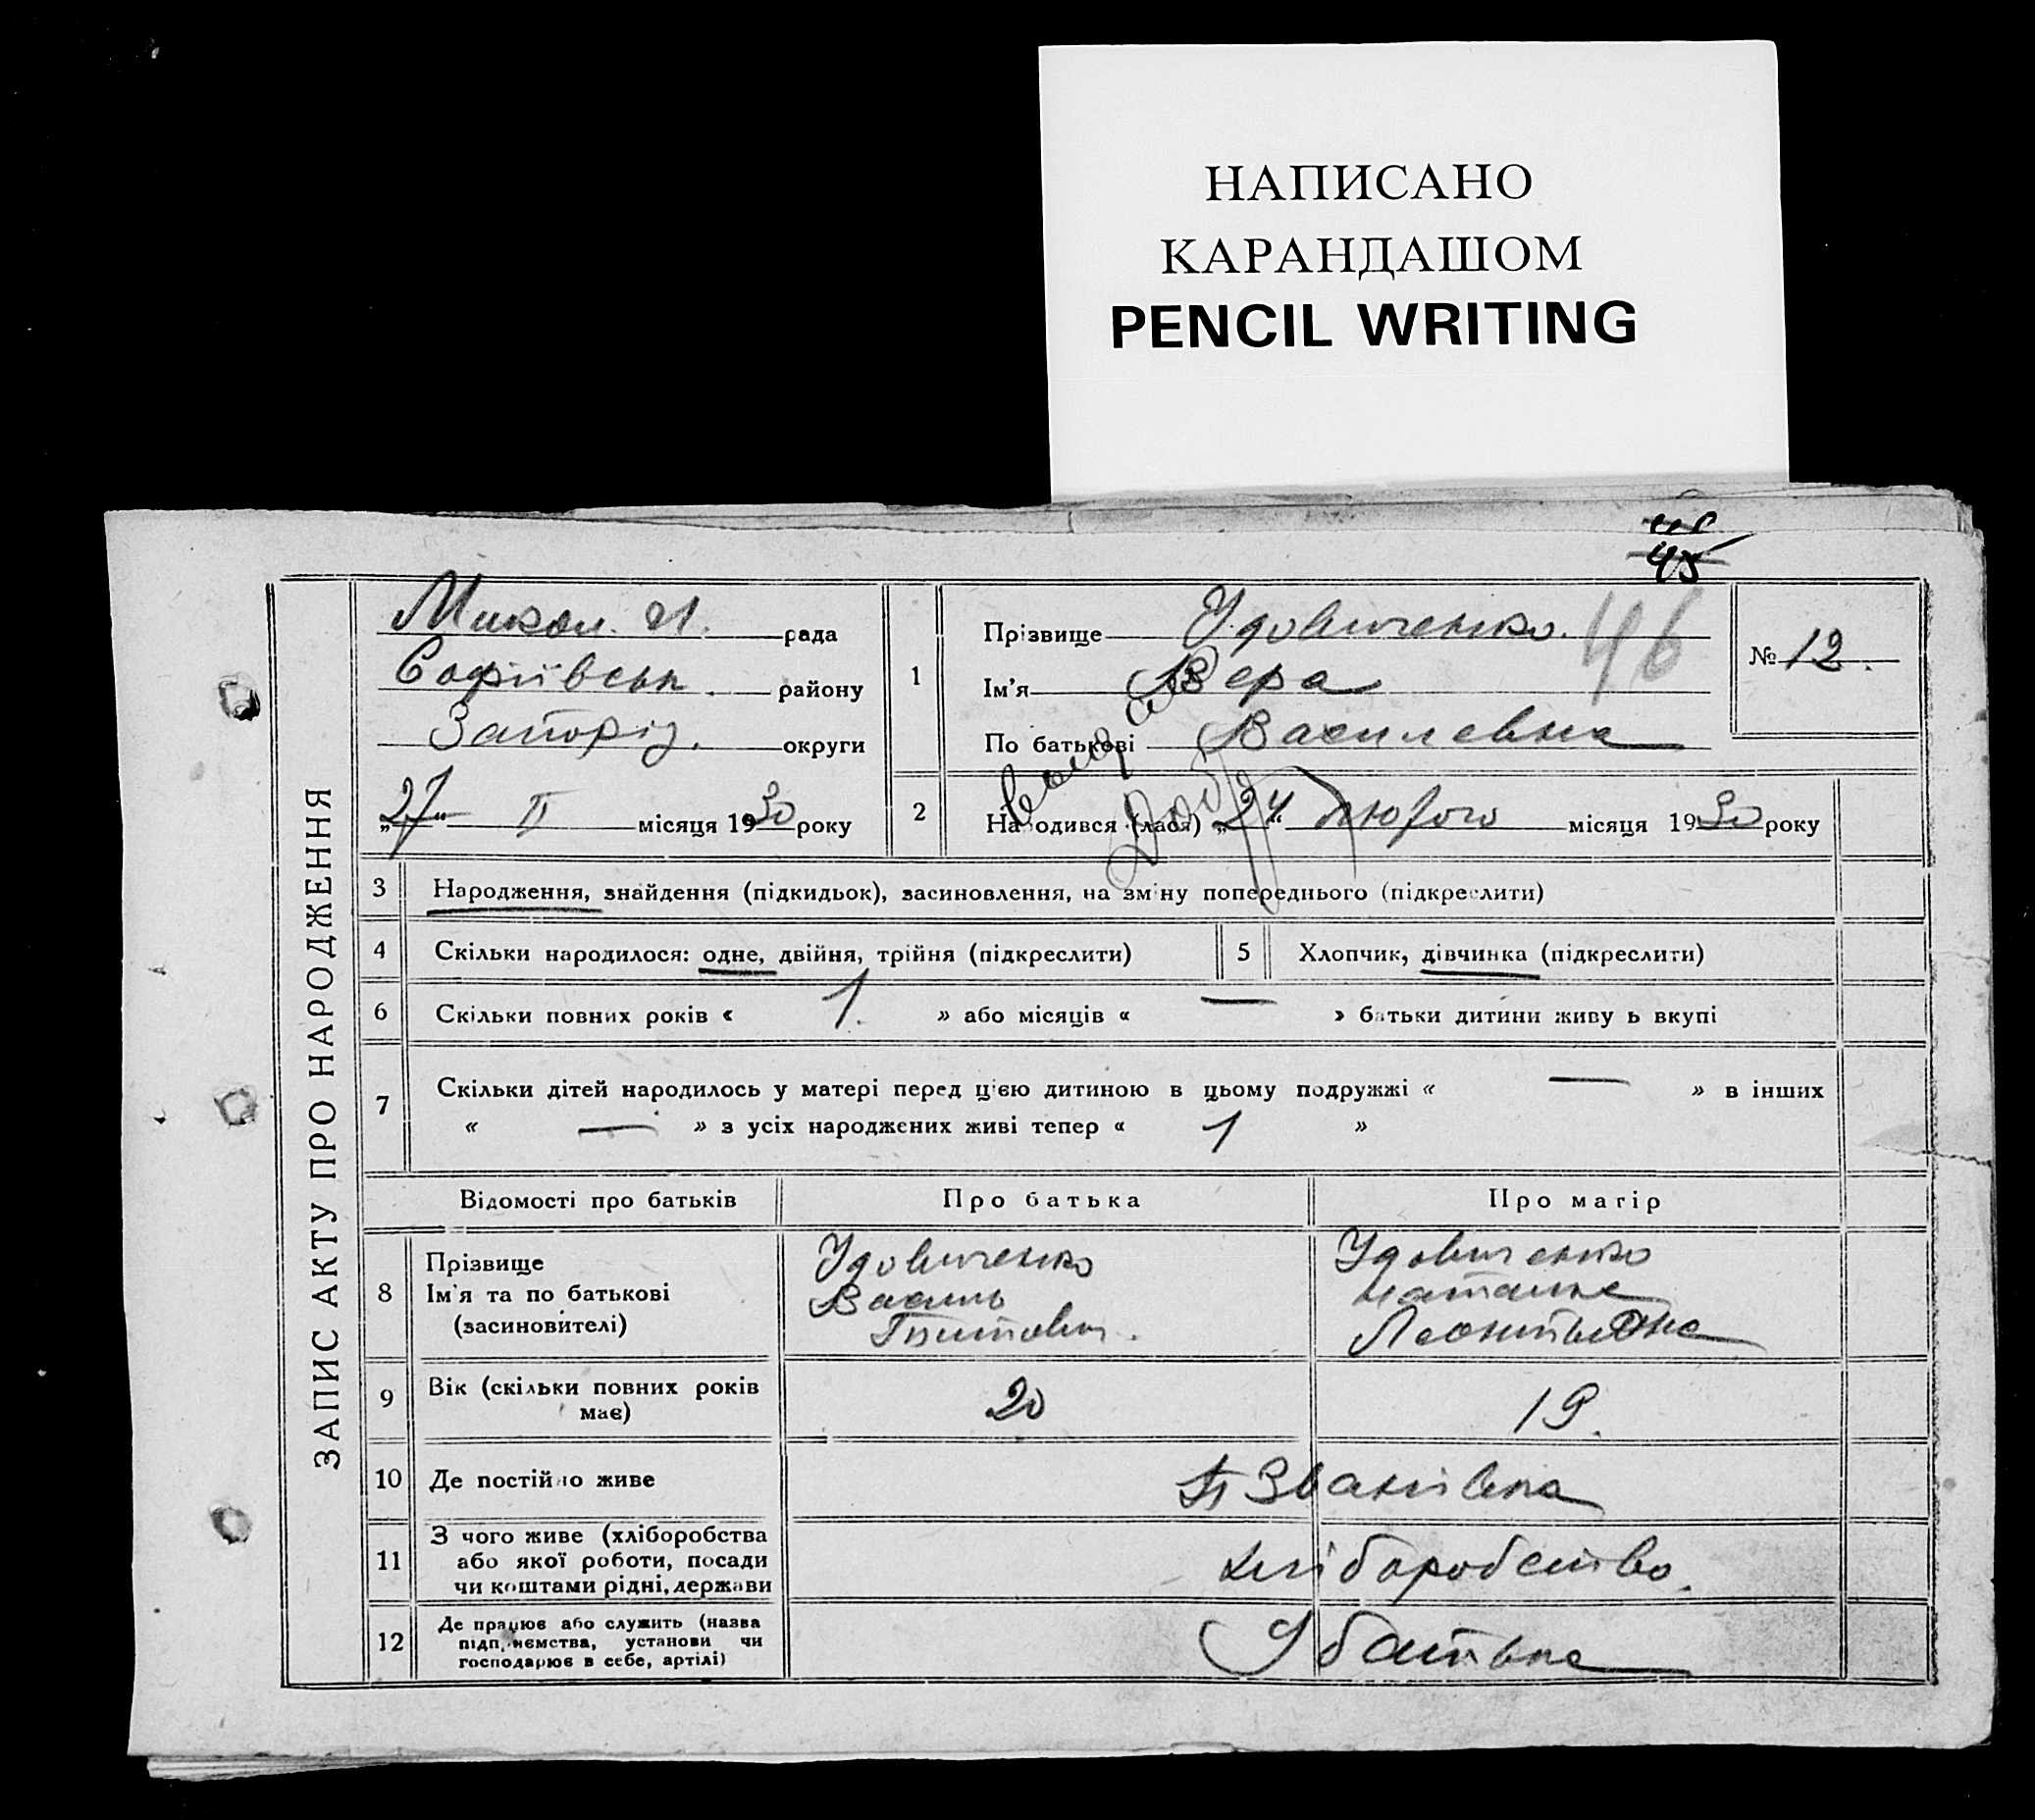 НАПИСАНО
КАРАНДАШОМ
PENCIL WRITING
45
46
ЗАПИС АКТУ ПРО НАРОДЖЕННЯ
Микол. рада
Софіївськ. району
Запоріз. округи
„27“ II місяця 1930 року
1
Прізвище Удовиченко.
Ім'я Вера
По батькові Василевна
№ 12.
2 Народився (лася) „24“ лютого місяця 1930 року
3 Народження, знайдення (підкидьок), засиновлення, на зміну попереднього (підкреслити)
4 Скільки народилося: одне, двійня, трійня (підкреслити) 5 Хлопчик, дівчинка (підкреслити)
6 Скільки повних років « 1. » або місяців « — » батьки дитини живуть вкупі
7 Скільки дітей народилось у матері перед цією дитиною в цьому подружжі « — » в інших
« — » з усіх народжених живі тепер « 1 »
Відомості про батьків Про батька Про матір
8 Прізвище Удовиченко Удовиченко
Ім'я та по батькові Василь Наталка
(засиновителі) Титович. Леонтьевна
9 Вік (скільки повних років має) 20 19.
10 Де постійно живе Званівка
11 З чого живе (хліборобства
або якої роботи, посади
чи коштами рідні, держави хліборобство.
12 Де працює або служить (назва
підприємства, установи чи
господарює в себе, артілі) У батька